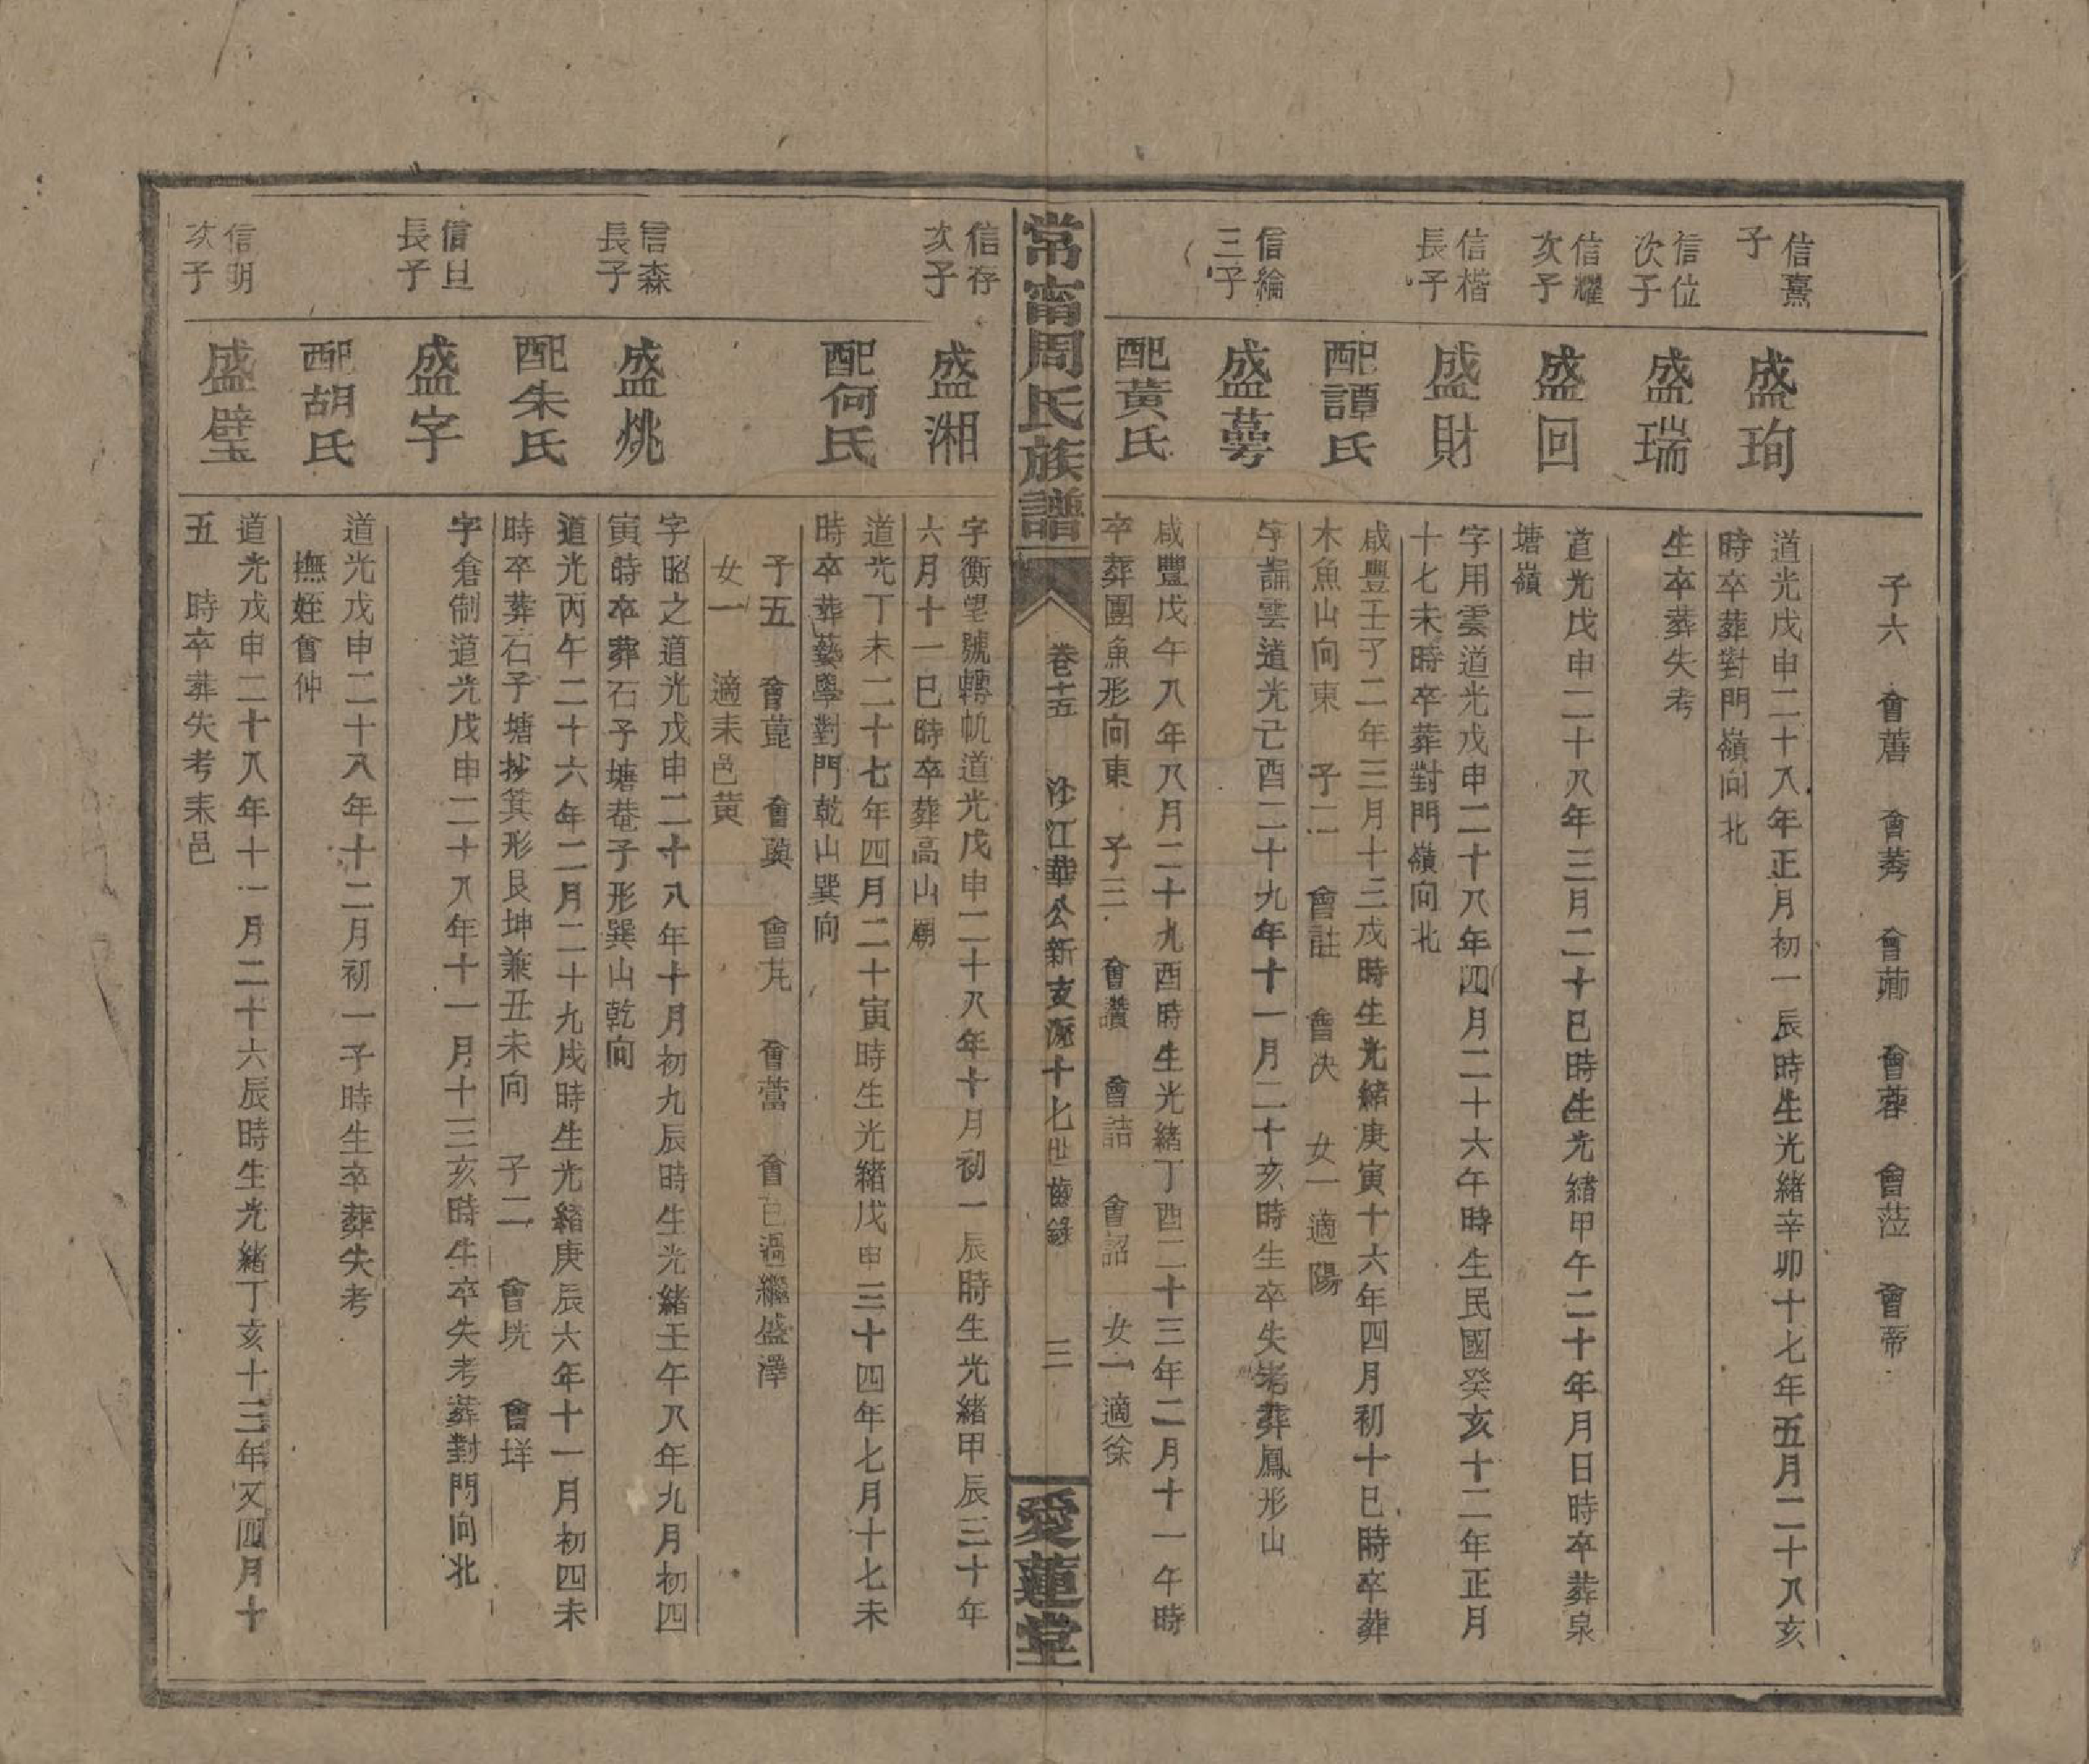 子六 會蓎 會莠 會薌 會蓉 會蒞 會帝
信熹
子
盛珣
道光戊申二十八年正月初一辰時生光緒辛卯十七年五月二十八亥
時卒葬對門嶺向北
信位
次子
盛瑞
生卒葬失考
信耀
次子
盛回
道光戊申二十八年三月二十巳時生光緒甲午二十年月日時卒葬泉
塘嶺
信楷
長子
盛財
字用雲道光戊申二十八年四月二十六午時生民國癸亥十二年正月
十七未時卒葬對門嶺向北
配譚氏
咸豐壬子二年三月十三戊時生光緒庚寅十六年四月初十巳時卒葬
木魚山向東 子二 會註 會決 女一適陽
信綸
三子
盛蕚
字論雲道光己酉二十九年十一月二十亥時生卒失考葬鳳形山
配黃氏
咸豐戊午八年八月二十九酉時生光緒丁酉二十三年二月十一午時
卒葬團魚形向東 子三 會讚 會詰 會詔 女一適徐
常甯周氏族譜
卷十五 沙江華公新支派十七世齒錄 三
愛蓮堂
信存
次子
盛湘
字衡望號轉帆道光戊申二十八年十月初一辰時生光緒甲辰三十年
六月十一巳時卒葬高山廟
配何氏
道光丁未二十七年四月二十寅時生光緒戊申三十四年七月十七未
時卒葬藝學對門乾山巽向
子五 會蓖 會蓂 會芃 會蕾 會芑過繼盛澤
女一 適耒邑黃
信森
長子
盛烑
字昭之道光戊申二十八年十月初九辰時生光緒壬午八年九月初四
寅時卒葬石子塘菴子形巽山乾向
配朱氏
道光丙午二十六年二月二十九戌時生光緒庚辰六年十一月初四未
時卒葬石子塘抄箕形艮坤兼丑未向 子二 會垙 會垟
信旦
長子
盛字
字倉制道光戊申二十八年十一月十三亥時生卒失考葬對門向北
配胡氏
道光戊申二十八年十二月初一子時生卒葬失考
撫姪會仲
信明
次子
盛璧
道光戊申二十八年十一月二十六辰時生光緒丁亥十三年又四月十
五 時卒葬失考耒邑